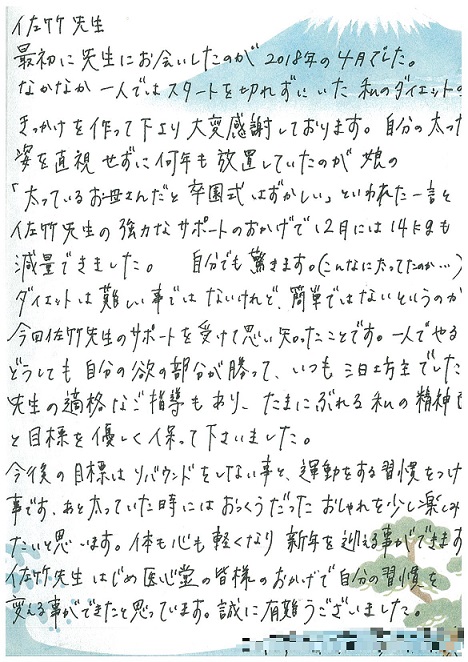 佐竹先生
最初に先生にお会いしたのが2018年の4月でした。
なかなか一人ではスタートを切れずにいた私のダイエットの
きっかけを作って下さり大変感謝しております。自分の太った
姿を直視せずに何年も放置していたのが娘の
「太っているお母さんだと卒園式はずかしい」といわれた一言と
佐竹先生の強力なサポートのおかげで12月には14kgも
減量できました。 自分でも驚きます。(こんなに太ってたのか…)
ダイエットは難しい事ではないけれど、簡単ではないというのが
今回佐竹先生のサポートを受けて思い知ったことです。一人でやる
どうしても自分の欲の部分が勝って、いつも三日坊主でした
先生の適格なご指導もあり、たまにぶれる私の精神
と目標を優しく保って下さいました。
今後の目標はリバウンドをしない事と、運動をする習慣をつけ
事です。あと太っていた時にはおっくうだったおしゃれを少し楽しみ
たいと思います。体も心も軽くなり新年を迎える事ができます
佐竹先生はじめ医心堂の皆様のおかげで自分の習慣を
変える事ができたと思っています。誠に有難うございました。